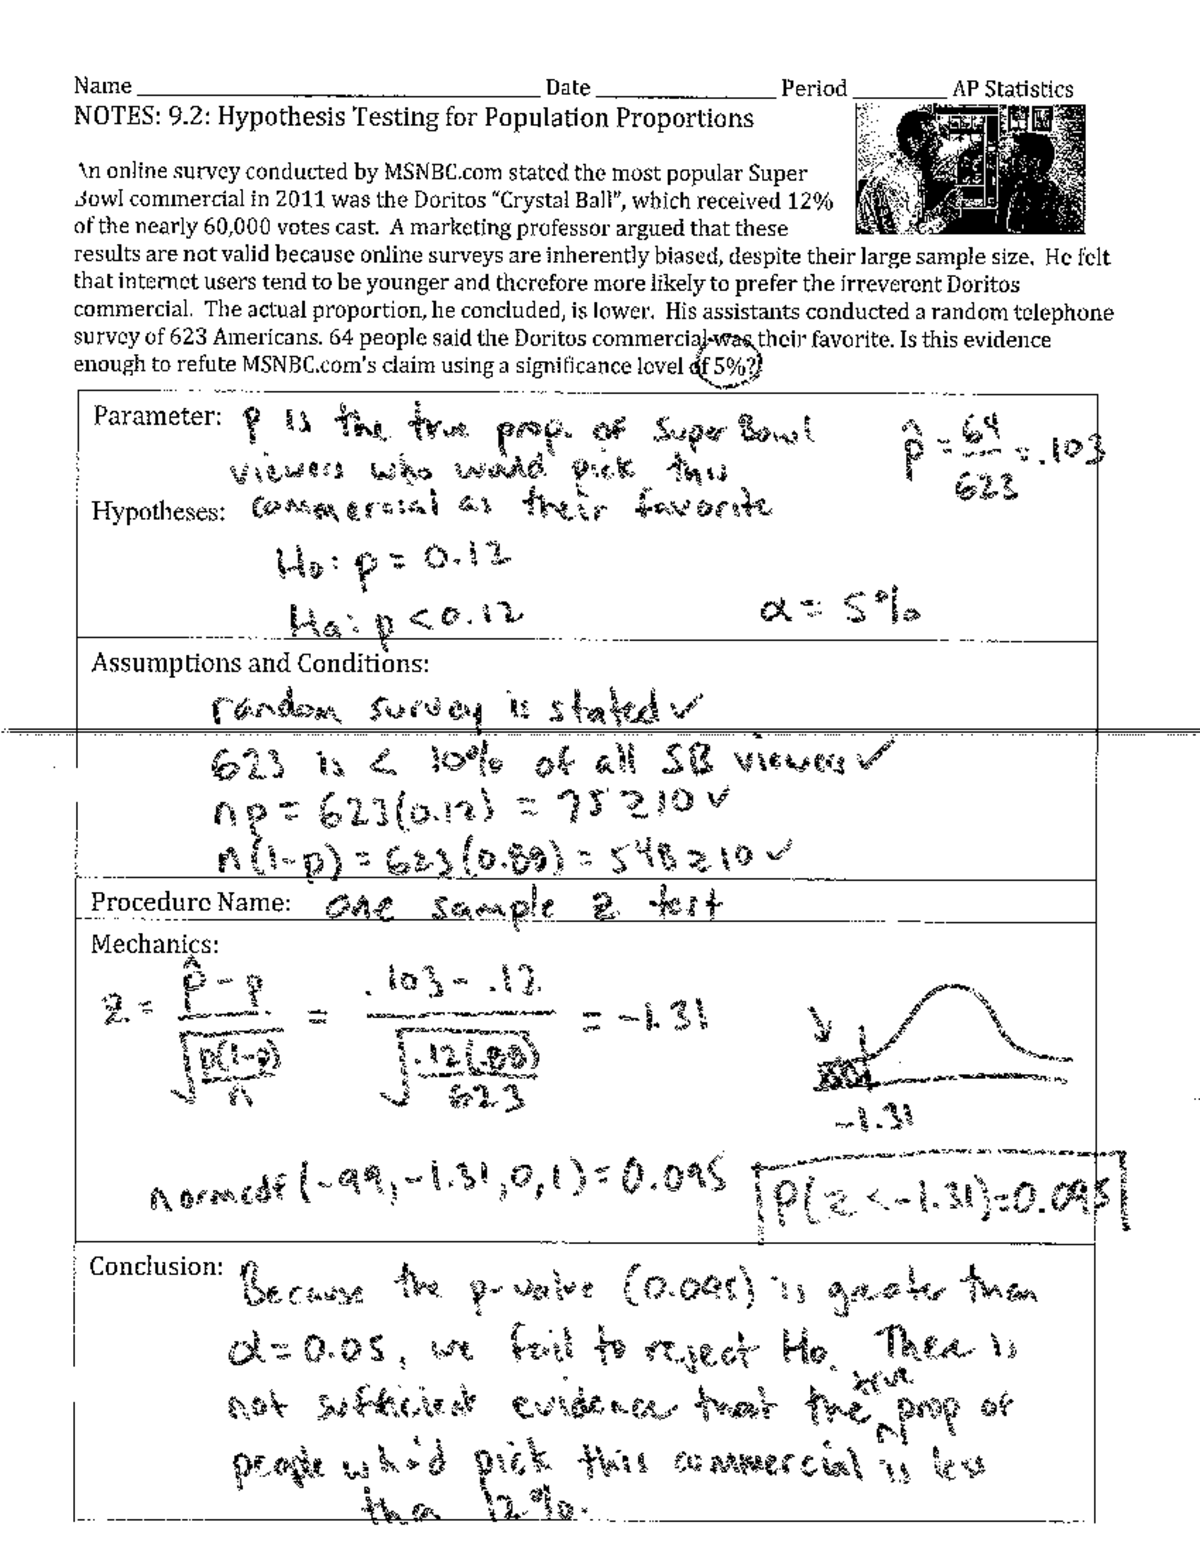 Name ________ Date ________ Period ________ AP Statistics
NOTES: 9.2: Hypothesis Testing for Population Proportions
An online survey conducted by MSNBC.com stated the most popular Super
Bowl commercial in 2011 was the Doritos “Crystal Ball”, which received 12%
of the nearly 60,000 votes cast. A marketing professor argued that these
results are not valid because online surveys are inherently biased, despite their large sample size. He felt
that internet users tend to be younger and therefore more likely to prefer the irreverent Doritos
commercial. The actual proportion, he concluded, is lower. His assistants conducted a random telephone
survey of 623 Americans. 64 people said the Doritos commercial was their favorite. Is this evidence
enough to refute MSNBC.com's claim using a significance level of 5%?
Parameter: p is the true prop. of Super Bowl
viewers who would pick this
Hypotheses: commercial as their favorite
p̂ = 64/623 = .103
H₀: p = 0.12
Ha: p < 0.12
α = 5%
Assumptions and Conditions:
random survey is stated ✓
623 is < 10% of all SB viewers ✓
np = 623(0.12) = 75 ≥ 10 ✓
n(1-p) = 623(0.88) = 548 ≥ 10 ✓
Procedure Name: one sample z test
Mechanics:
z = (p̂ - p)/√(p(1-p)/n) = (.103 - .12)/√(.12(.88)/623) = -1.31
-1.31
normcdf(-99, -1.31, 0, 1) = 0.095
P(z < -1.31) = 0.095
Conclusion: Because the p-value (0.095) is greater than
α = 0.05, we fail to reject H₀. There is
not sufficient evidence that the true prop of
people who'd pick this commercial is less
than 12%.